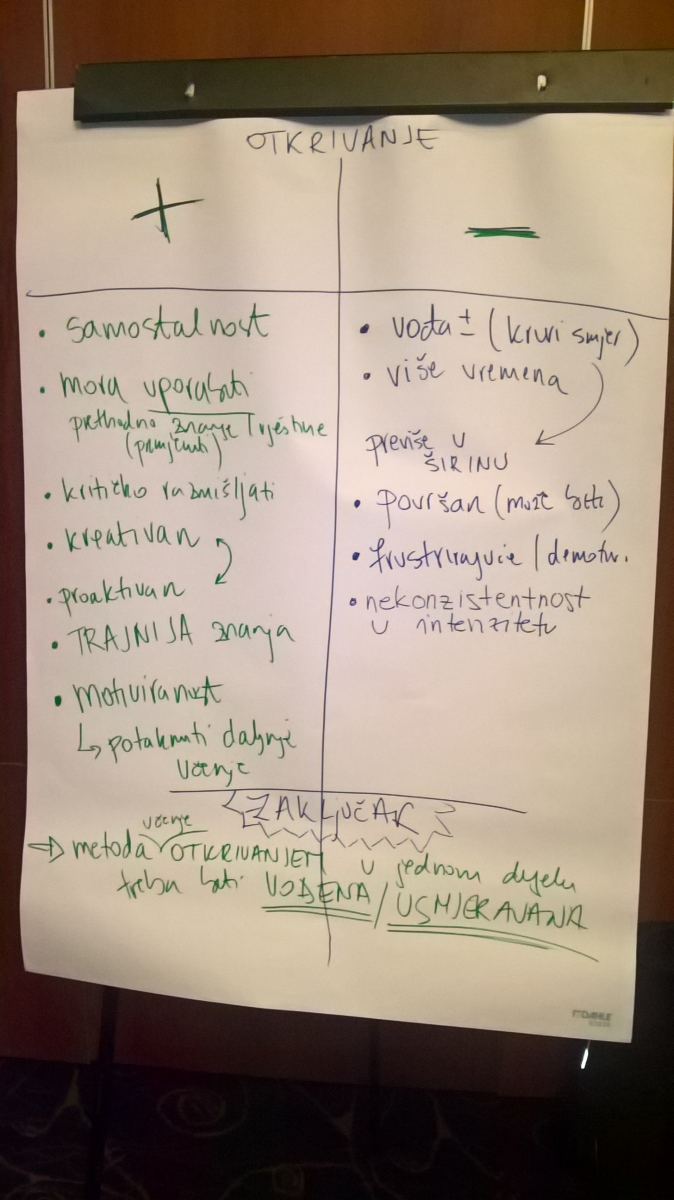 OTKRIVANJE
+
• samostalnost
• mora uporabiti
prethodno znanje / vještine
(primjeniti)
• kritičko razmišljati
• kreativan
• proaktivan
• TRAJNIJA znanja
• motiviranost
↳ potaknuti daljnje
učenje
–
• vođa ± (krivi smjer)
• više vremena
previše u
ŠIRINU
• površan (može biti)
• frustrirajuće / demotiv.
• nekonzistentnost
u intenzitetu
ZAKLJUČAK
učenje
⇒ metoda OTKRIVANJEM u jednom dijelu
treba biti VOĐENA / USMJERAVANA
DAHLE